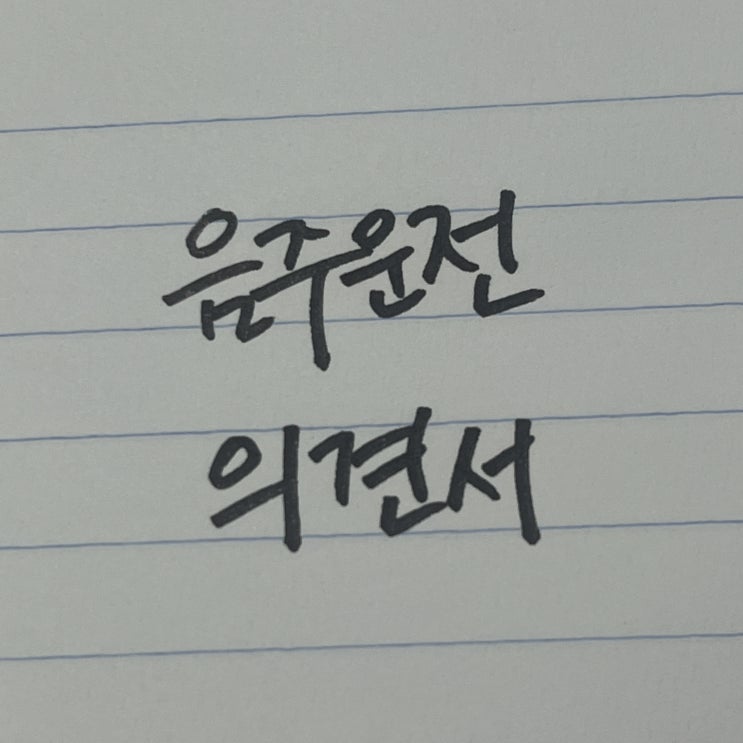 음주운전
의견서